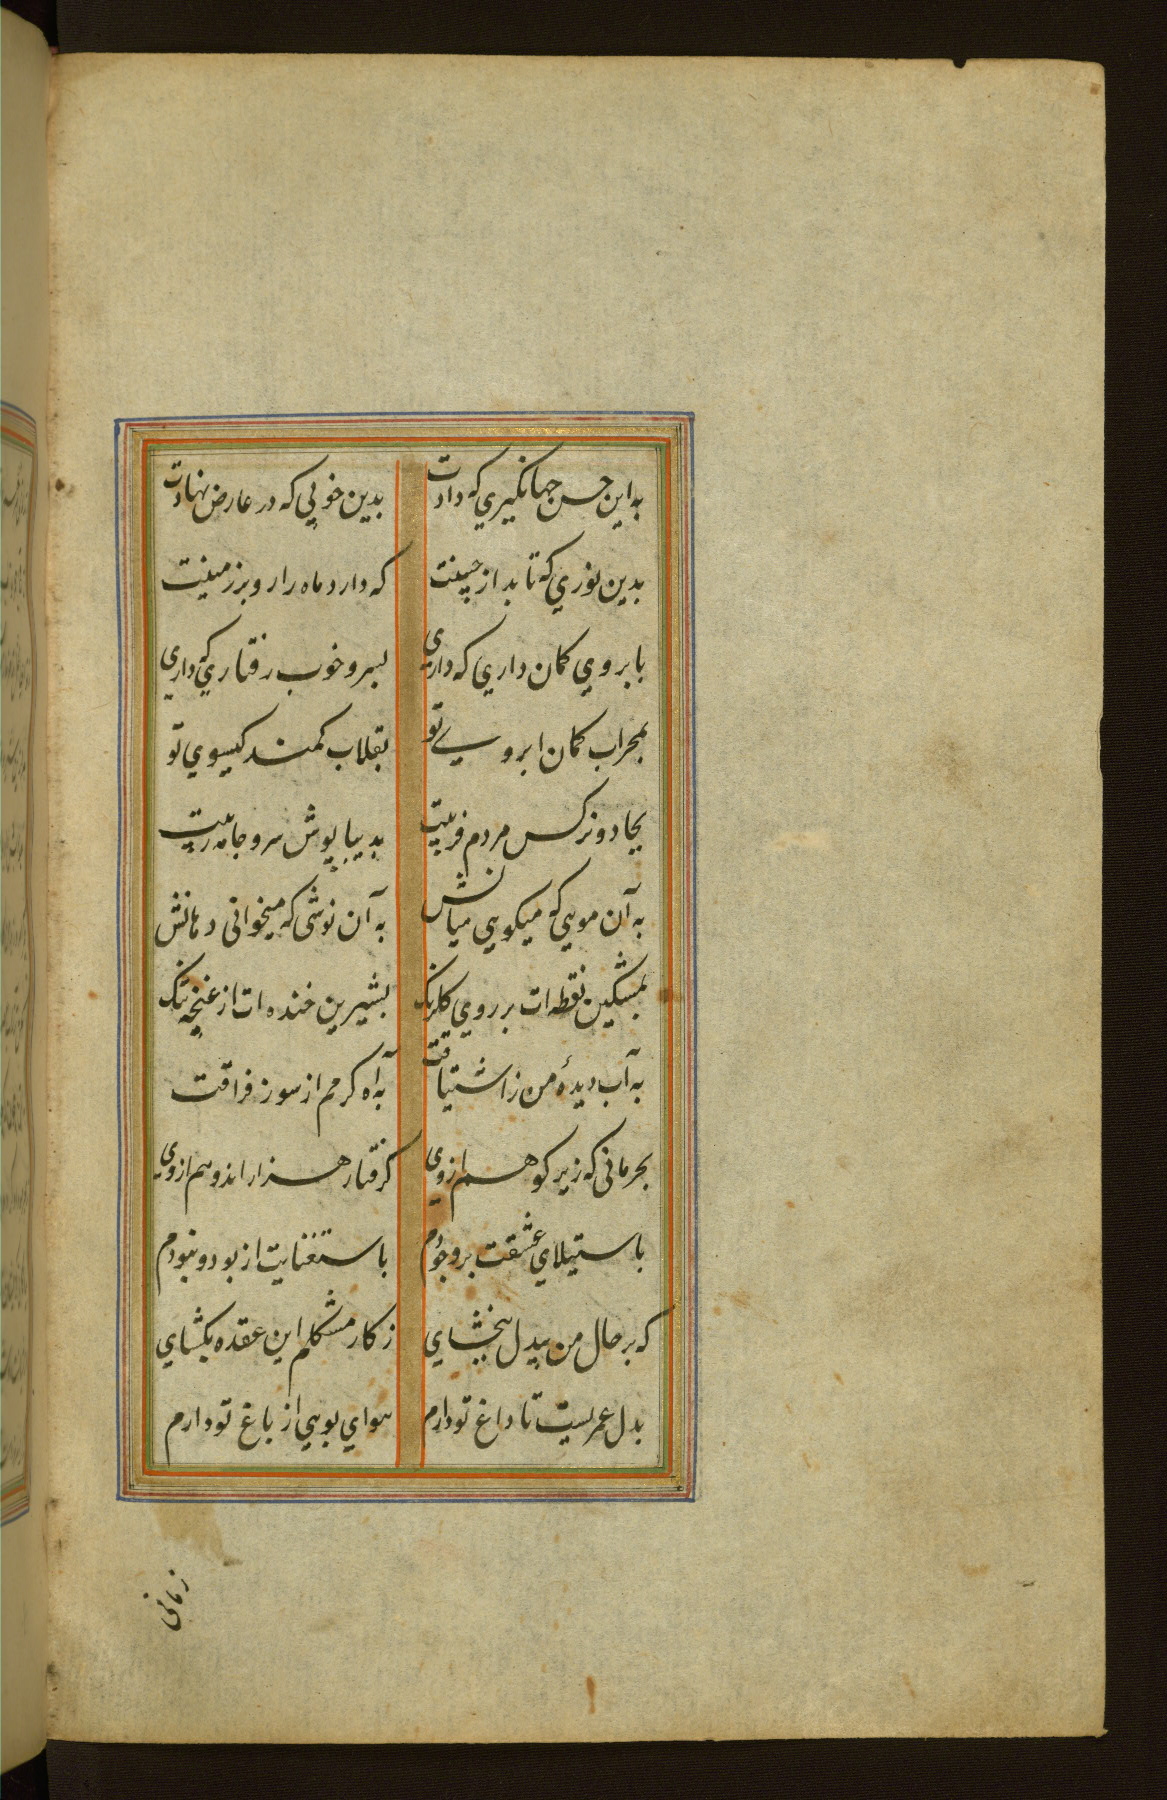 به این حسن جهانکیري که دادت بدین خوبي که در عارض نهادت
بدین نوري که تابد از جبینت که دارد ماه را رو بر زمینت
بابروي کمان داري که داري بسرو خوب رفتاري که داري
بمحراب کمان ابروي تو بقلاب کمند کیسوي تو
بجادو نرکس مردم فریبت بدیبا پوش سرو جامه زیبت
به آن موي که میکویي میانش به آن نوشی که میخوانی دهانش
بمشکین نقطه ات بر روي کلرنک بشیرین خنده ات از غنچه تنک
به آب دیدهٔ من ز اشتیاقت به آه کرمم از سوز فراقت
بحرمانی که زیر کوهم ازوي کرفتار هزار اندوهم ازوي
باستیلاي عشقت بر وجودم باستغنایت از بود و نبودم
که بر حال من بیدل ببخشاي ز کار مشکلم این عقده بکشاي
بدل عمریست تا داغ تو دارم هواي بویي از باغ تو دارم
زمانی